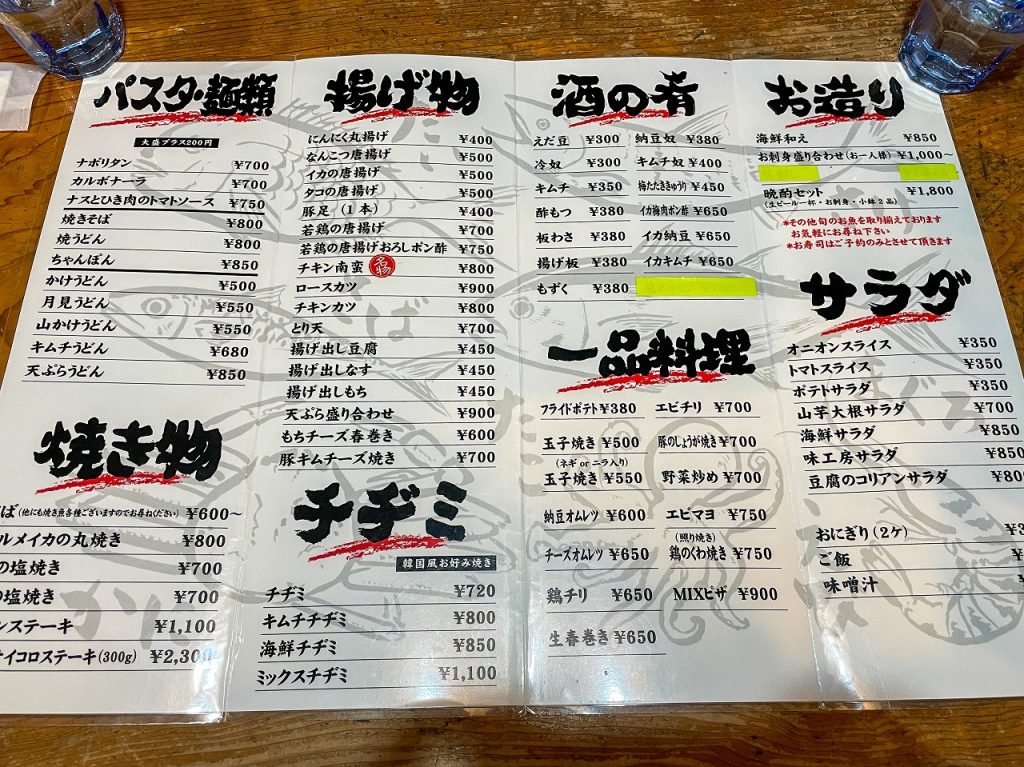 パスタ・麺類
大盛プラス200円
ナポリタン ¥700
カルボナーラ ¥700
ナスとひき肉のトマトソース ¥750
焼きそば ¥800
焼うどん ¥800
ちゃんぽん ¥850
かけうどん ¥500
月見うどん ¥550
山かけうどん ¥550
キムチうどん ¥680
天ぷらうどん ¥850
焼き物
ば(他にも焼き魚各種ございますのでお尋ねください) ¥600~
ルメイカの丸焼き ¥800
の塩焼き ¥700
の塩焼き ¥700
ンステーキ ¥1,100
イコロステーキ(300g) ¥2,300
揚げ物
にんにく丸揚げ ¥400
なんこつ唐揚げ ¥500
イカの唐揚げ ¥500
タコの唐揚げ ¥500
豚足(1本) ¥400
若鶏の唐揚げ ¥700
若鶏の唐揚げおろしポン酢 ¥750
チキン南蛮 名物 ¥800
ロースカツ ¥900
チキンカツ ¥800
とり天 ¥700
揚げ出し豆腐 ¥450
揚げ出しなす ¥450
揚げ出しもち ¥450
天ぷら盛り合わせ ¥900
もちチーズ春巻き ¥600
豚キムチーズ焼き ¥700
チヂミ
韓国風お好み焼き
チヂミ ¥720
キムチチヂミ ¥800
海鮮チヂミ ¥850
ミックスチヂミ ¥1,100
酒の肴
えだ豆 ¥300 納豆奴 ¥380
冷奴 ¥300 キムチ奴 ¥400
キムチ ¥350 梅たたききゅうり ¥450
酢もつ ¥380 イカ梅肉ポン酢 ¥650
板わさ ¥380 イカ納豆 ¥650
揚げ板 ¥380 イカキムチ ¥650
もずく ¥380
一品料理
フライドポテト ¥380 エビチリ ¥700
玉子焼き ¥500 豚のしょうが焼き ¥700
(ネギ or ニラ入り)
玉子焼き ¥550 野菜炒め ¥700
納豆オムレツ ¥600 エビマヨ ¥750
(照り焼き)
チーズオムレツ ¥650 鶏のくわ焼き ¥750
鶏チリ ¥650 MIXピザ ¥900
生春巻き ¥650
お造り
海鮮和え ¥850
お刺身盛り合わせ(お一人様) ¥1,000~
晩酌セット ¥1,800
(生ビール一杯・お刺身・小鉢2品)
*その他旬のお魚を取り揃えております
お気軽にお尋ね下さい
*お寿司はご予約のみとさせて頂きます
サラダ
オニオンスライス ¥350
トマトスライス ¥350
ポテトサラダ ¥350
山芋大根サラダ ¥700
海鮮サラダ ¥850
味工房サラダ ¥850
豆腐のコリアンサラダ ¥80
おにぎり(2ケ) ¥3
ご飯
味噌汁